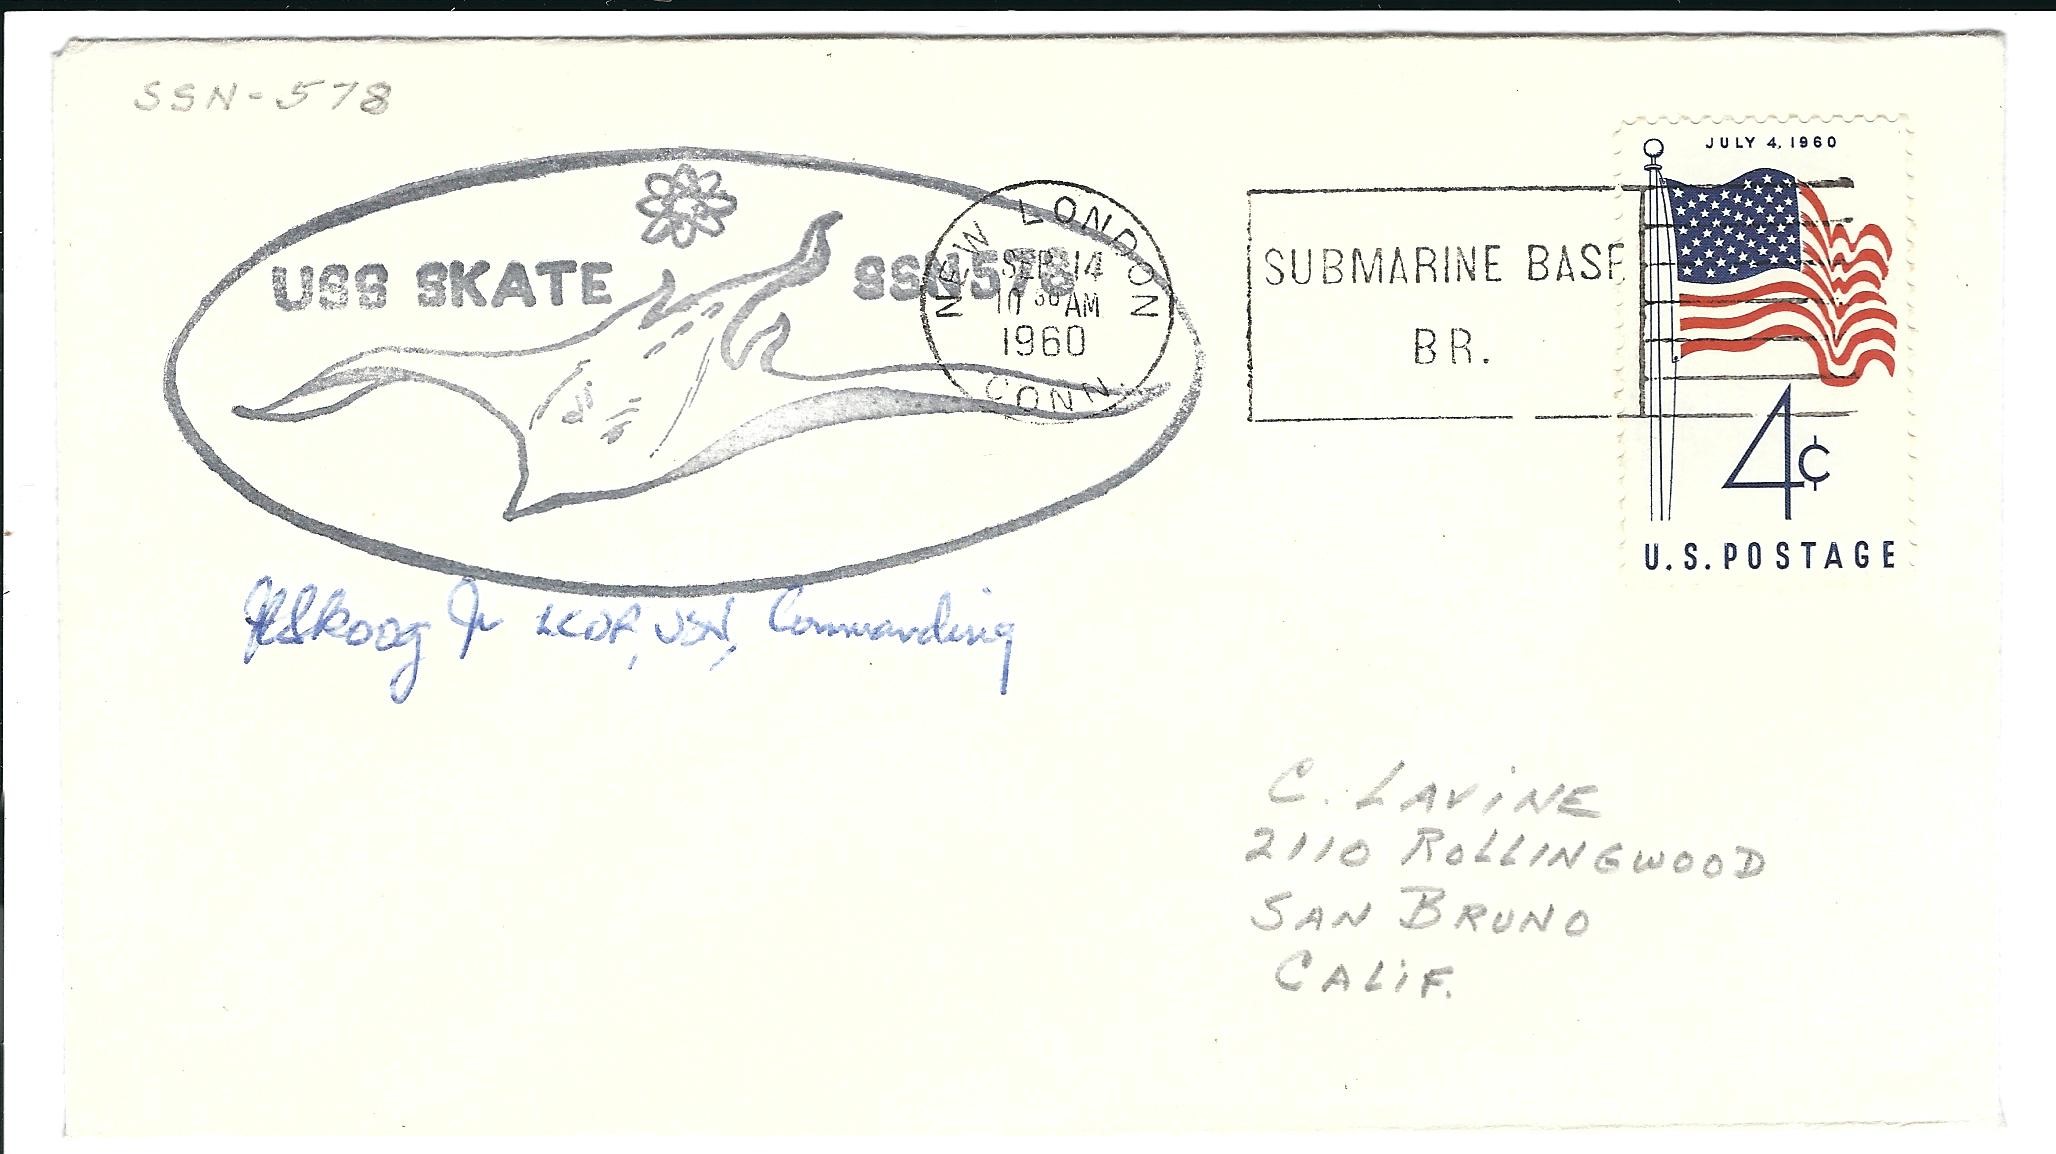 SSN-578
USS SKATE SSN578
NEW LONDON
SEP 14
10 30 AM
1960
CONN.
SUBMARINE BASE
BR.
JULY 4, 1960
4¢
U.S. POSTAGE
Skoog Jr LCDR, USN, Commanding
C. LAVINE
2110 ROLLINGWOOD
SAN BRUNO
CALIF.